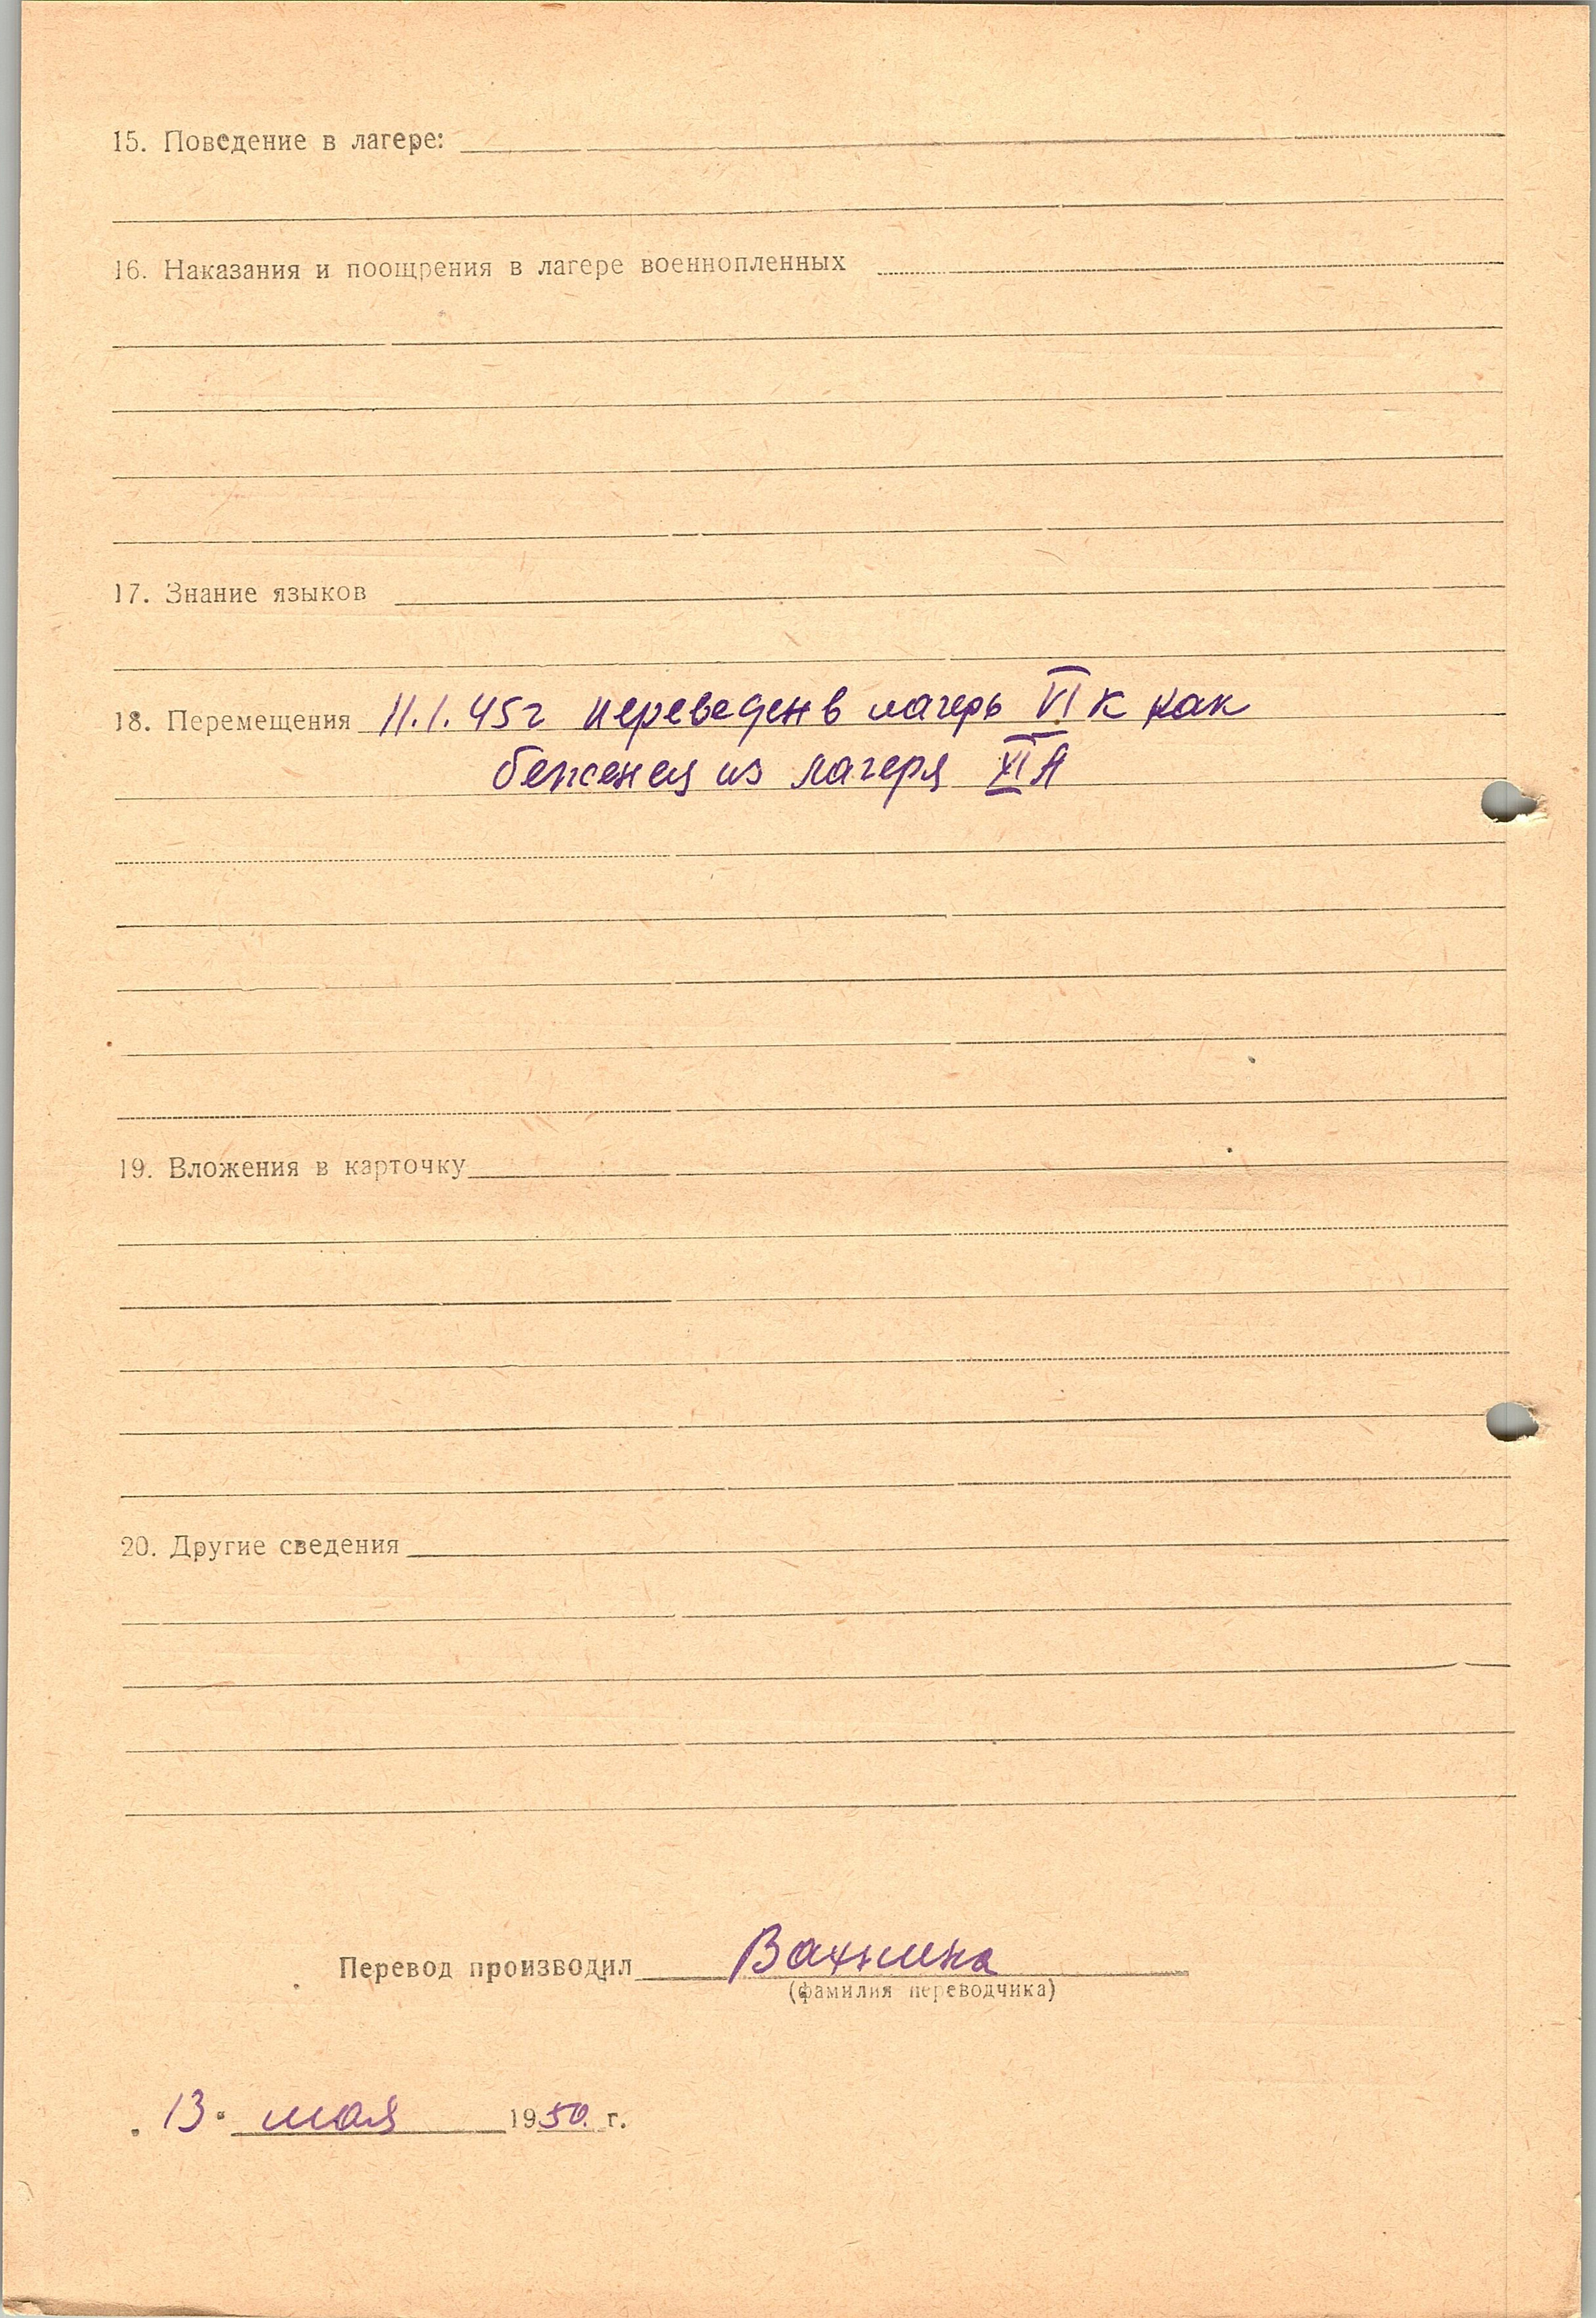 15. Поведение в лагере:
16. Наказания и поощрения в лагере военнопленных
17. Знание языков
18. Перемещения 11.1.45г переведен в лагерь VI К как
из лагеря XI А
19. Вложения в карточку
20. Другие сведения
Перевод производил Вахнина
(фамилия переводчика)
13. мая 1950. г.